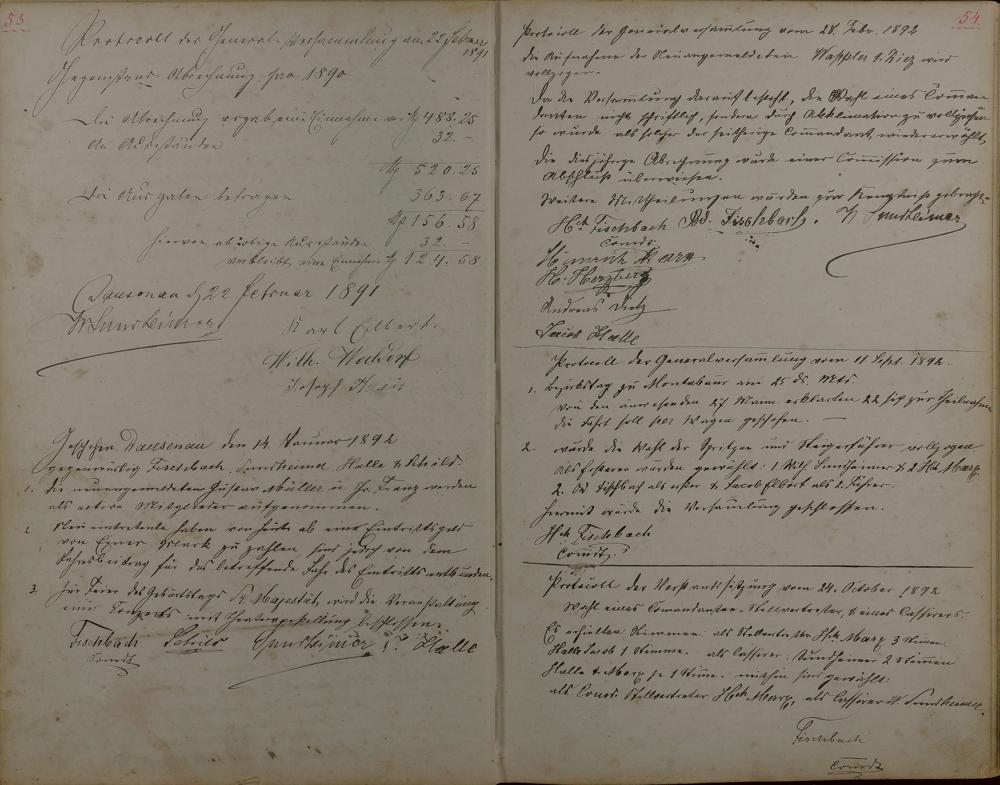 53
Protocoll der General-Versammlung am 22 Februar
1891
Gegenstand: Abrechnung pro 1890
Die Abrechnung ergab eine Einnahme von M 488.25
An Ausständen 32.-
M 520.25
Die Ausgaben betragen 363.67
M 156.58
hiervon ab obige Ausstände 32.-
verbleibt eine Einnahme M 124.58
Dausenau d. 22 Februar 1891
W. Sundheimer
Karl Elbert.
Wilh.
Joseph
Geschehen Dausenau den 14 Januar 1892
gegenwärtig Fischbach, Sundheimer, Halle &
1. Die neuangemeldeten Gustav Müller u. Hr. Franz werden
als active Mitglieder aufgenommen.
2. Neu eintretende haben von heute ab eine Eintrittsgeld
von Einer Mark zu zahlen, sind jedoch von dem
Jahresbeitrag für das betreffende Jahr des Eintritts entbunden.
3. Zur Feier des Geburtstags Sr Majestät wird die Veranstaltung
eines Konzerts mit Theatervorstellung beschlossen.
Fischbach Sundheimer J. Halle
Comdt
54.
Protocoll der Generalversammlung vom 28. Febr. 1892
Die Aufnahme der Neuangemeldeten wird
vollzogen.
Da die Versammlung darauf besteht, die Wahl eines Comman-
danten nicht schriftlich, sondern durch Akklamation zu vollziehen
so wurde als solcher der seitherige Commandant wiedererwählt.
Die diesjährige Abrechnung wurde einer Commission zum
Abschluß überwiesen.
Weitere Mittheilungen wurden zur Kenntniß gebracht.
Hch Fischbach Ad. Fischbach. W Sundheimer
Comdt
Heinrich Marx
H. Herzberg
Andreas Dietz
Jacob Halle
Protocoll der Generalversammlung vom 11 Sept. 1892.
1. Bezirkstag zu Montabaur am 25 ds. Mts.
Von den anwesenden 27 Mann erklärten 22 sich zur Theilnahme
die Fahrt soll per Wagen geschehen.
2. wurde die Wahl der Spritzen und Steigerführer vollzogen
Als erstere wurden gewählt: 1 Wilh. Sundheimer & 2 Hch. Marx
2. Ad Fischbach als erster & Jacob Elbert als 2. Führer.
Hiermit wurde die Versammlung geschlossen.
Hch Fischbach
Comdt.
Protocoll der Vorstandssitzung vom 24. October 1892
Wahl eines Comandanten-Stellvertreter, & eines Cassirers.
Es erhielten Stimmen: als Stellvertreter Hch. Marx 3 Stimmen
Halle Jacob 1 Stimme. als Cassirer: Sundheimer 2 Stimmen
Halle & Marx je 1 Stimme. mithin sind gewählt:
als Comdt Stellvertreter Hch. Marx, als Cassirer W. Sundheimer.
Fischbach
Comdt